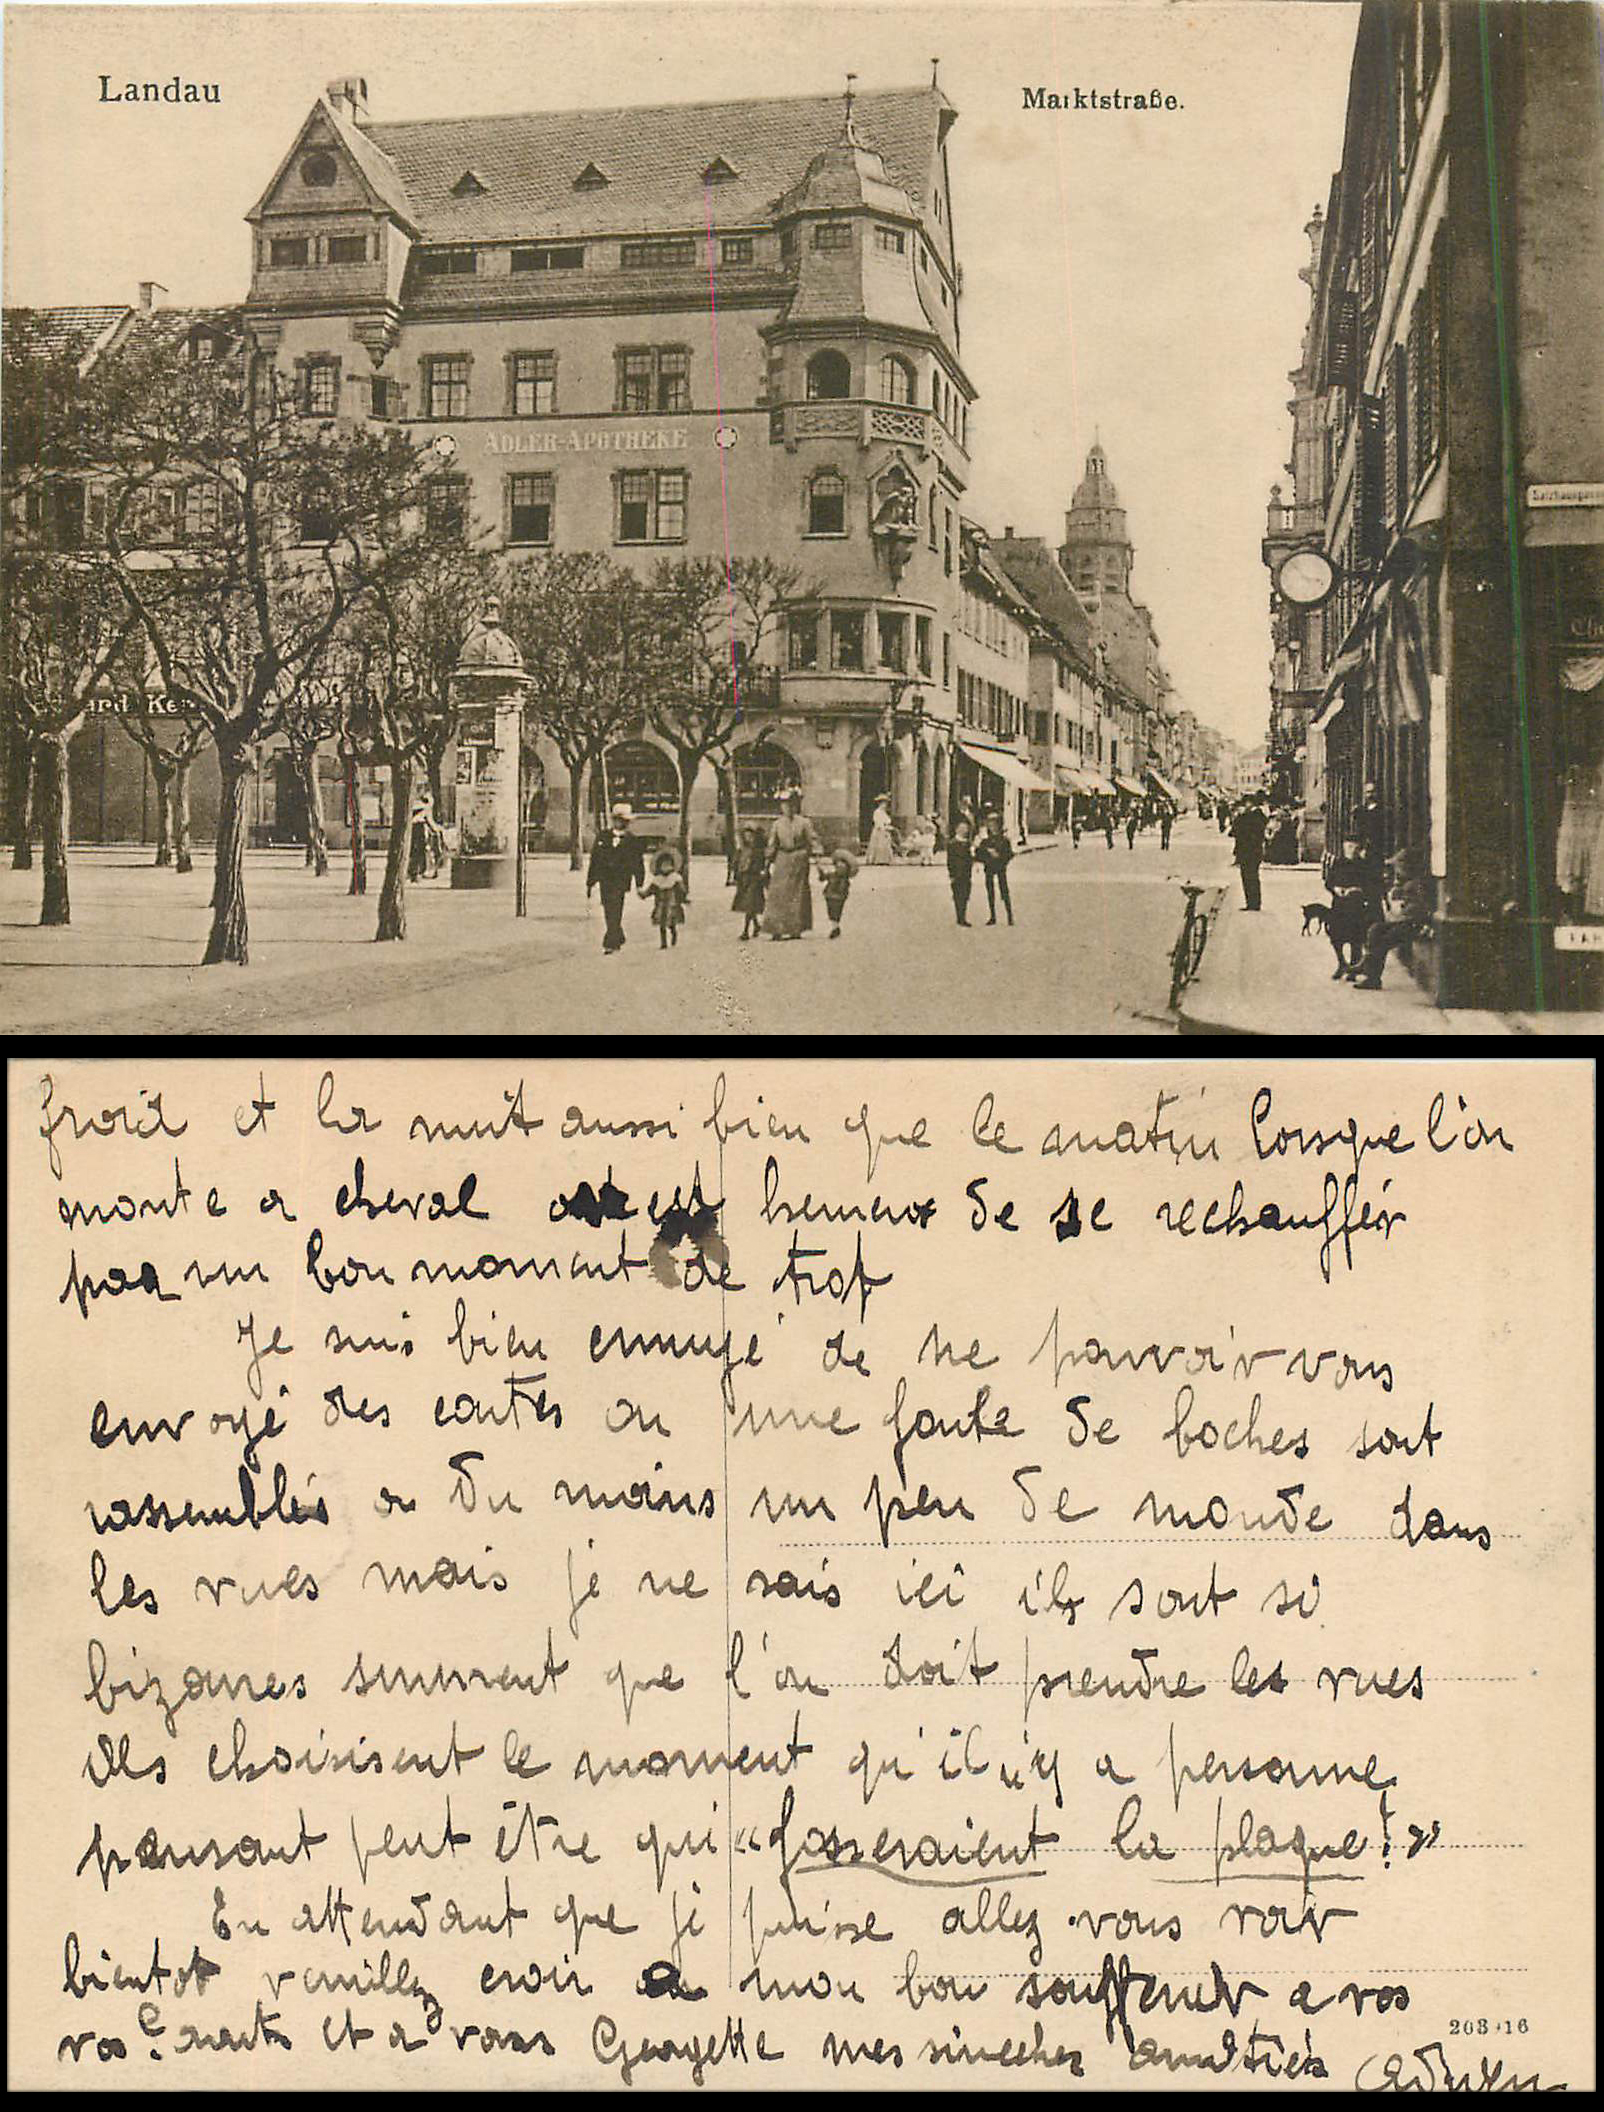 Landau
Marktstraße.
ADLER-APOTHEKE
Salzhausgasse
ard Ker
froid et la nuit aussi bien que le matin lorsque l'on
monte a cheval est heureux de se rechauffer
par un bon moment de trop
Je suis bien ennuyé de ne pouvoir vous
envoyé des cartes ou une foule de boches sont
rassemblés ou du moins un peu de monde dans
les rues mais je ne sais ici ils sont si
bizarres surement que l'on doit prendre les vues
ils choisisent le moment qu'il n'y a personne
pensant peut être qui "fosseraient la plaque!"
En attendant que je puisse allez vous voir
bientot veuillez croir a mon bon a vos
vos et a vous Georgette mes
203 16